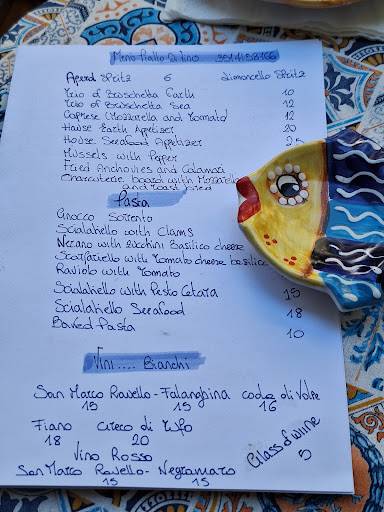 Menù Piatto di Tino 351 4158166
Aperol SPRITZ 6 Limoncello SPRITZ
Trio of Bruschetta Earth 10
Trio of Bruschetta Sea 12
Caprese Mozzarella and Tomato 12
House Earth Appetizer 20
House Seafood Appetizer 25
Mussels with Paper
Fried Anchovies and Calamari
Charcuterie board with Mozzarella
and toast bread
Pasta
Gnocco Sorrento
Scialatiello with Clams
Nerano with zucchini Basilico cheese
Scarpariello with tomato cheese basilico
Raviolo with Tomato
Scialatiello with Pesto Cetara 15
Scialatiello Seafood 18
Baked Pasta 10
Vini .... Bianchi
San Marco Ravello - Falanghina coda di Volpe
15 15 16
Fiano Greco di Tufo
18 20
Glass of wine
5
Vino Rosso
San Marco Ravello - Negramaro
15 15